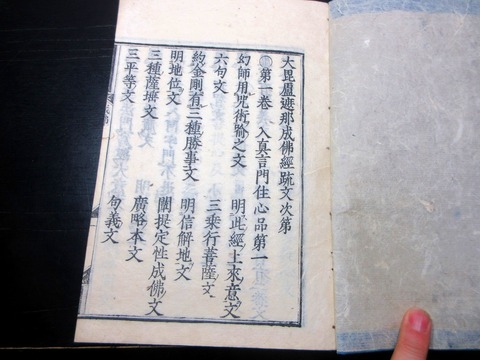 大毘盧遮那成佛經疏文次第
第一卷 入真言門住心品第一
幻師用呪術喩之文 明此經上來意文
六句文 三乗行菩薩文
約金剛有三種勝事文 明信解地文
明地位文 闡提定性成佛文
三種薩埵文 廣略本文
三平等文 句義文